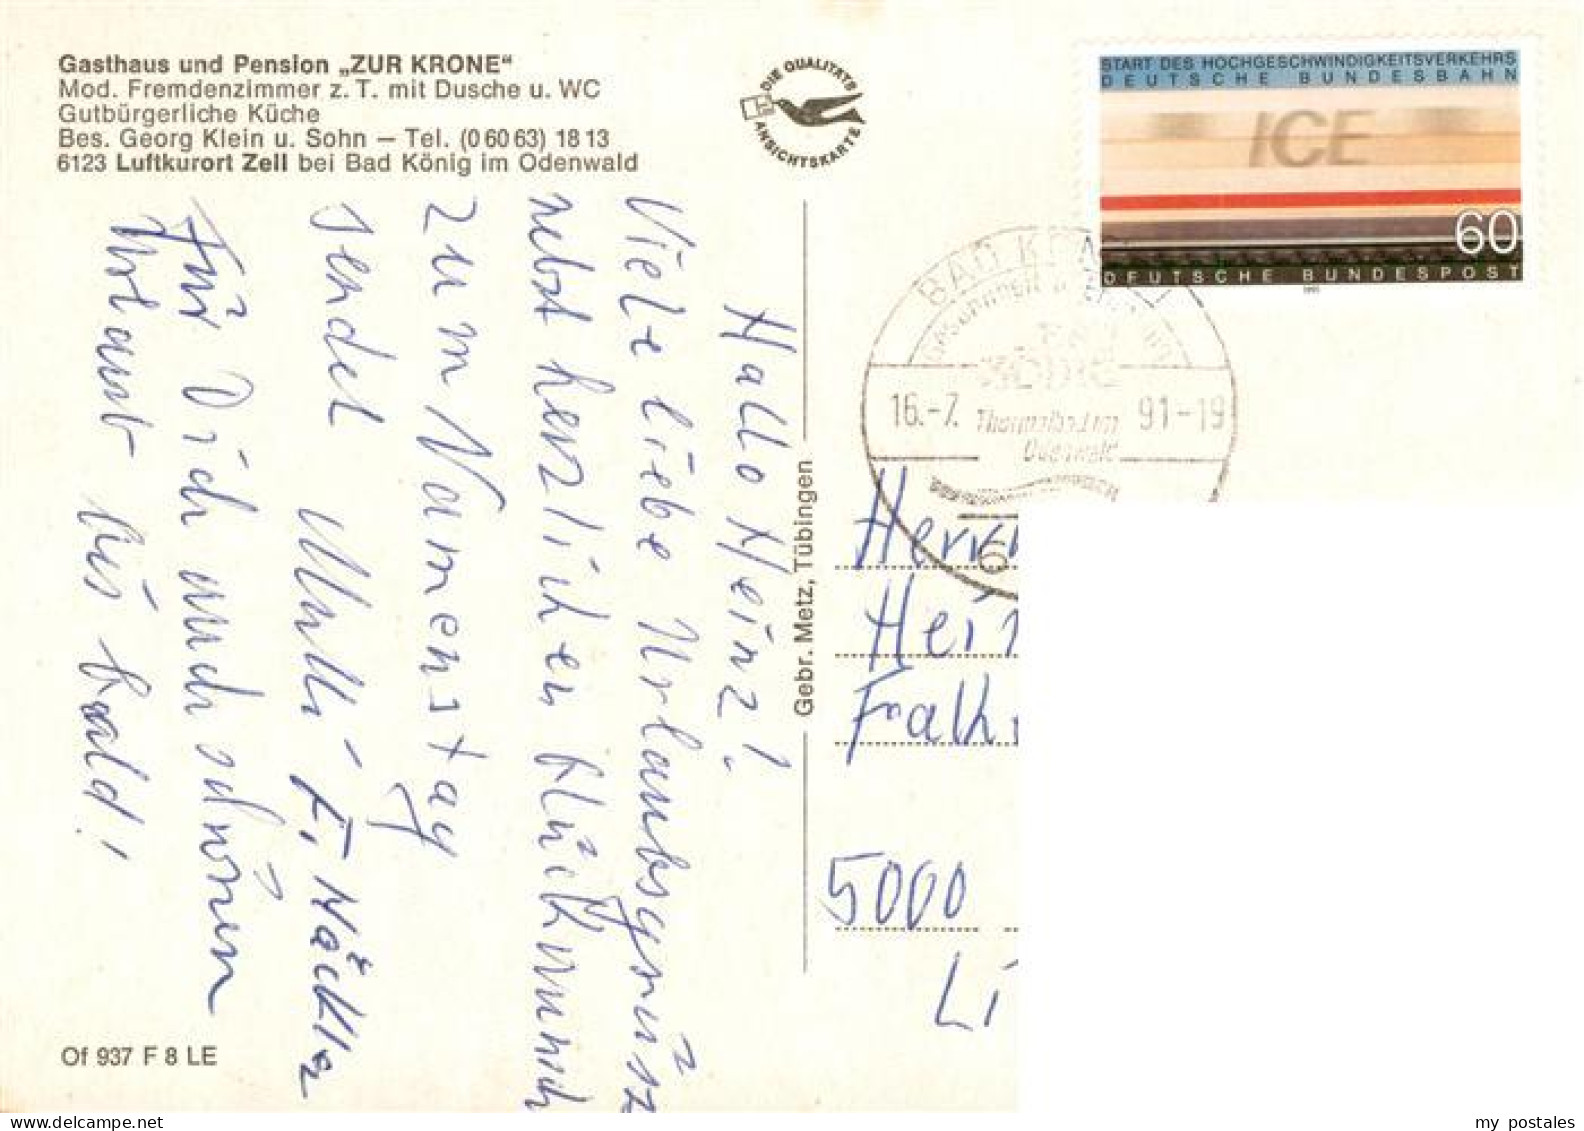 Gasthaus und Pension „ZUR KRONE“
Mod. Fremdenzimmer z. T. mit Dusche u. WC
Gutbürgerliche Küche
Bes. Georg Klein u. Sohn — Tel. (0 60 63) 18 13
6123 Luftkurort Zell bei Bad König im Odenwald
DIE QUALITÄTS
ANSICHTSKARTE
START DES HOCHGESCHWINDIGKEITSVERKEHRS
DEUTSCHE BUNDESBAHN
ICE
60
DEUTSCHE BUNDESPOST
BAD
16.-7. 91-19
Thermalbad im
Odenwald
6
Hallo Heinz!
Viele liebe Urlaubsgrüße
nebst herzlichen Glückwunsch
zum Namenstag
sendet
Für Dich auch schönen
Urlaub bis bald!
Gebr. Metz, Tübingen
Herrn
Hein
Falk
5000
Of 937 F 8 LE
my postales